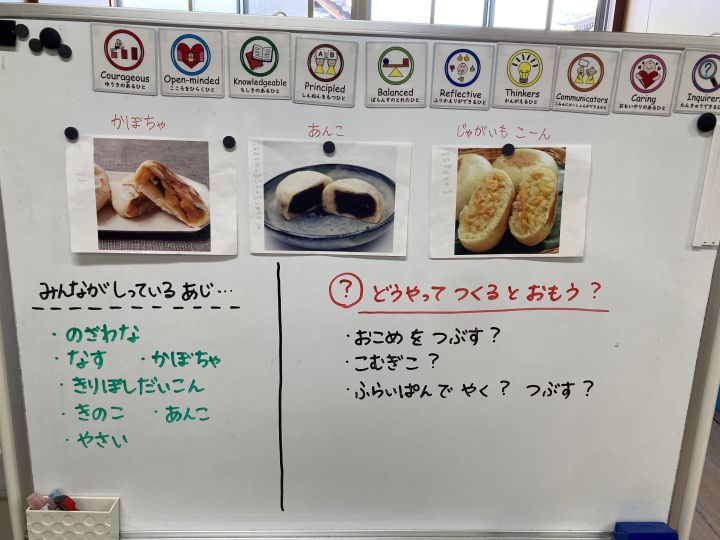 Courageous
ゆうきのあるひと
Open-minded
こころをひらくひと
Knowledgeable
ちしきのあるひと
Principled
しんねんをもつひと
Balanced
ばらんすのとれたひと
Reflective
ふりかえりができるひと
Thinkers
かんがえるひと
Communicators
こみゅにけーしょんができるひと
Caring
おもいやりのあるひと
Inquirers
かぼちゃ
あんこ
じゃがいも こーん
みんながしっている あじ…
・のざわな
・なす ・かぼちゃ
・きりぼしだいこん
・きのこ ・あんこ
・やさい
? どうやって つくる と おもう ?
・おこめ を つぶす ?
・こむぎこ ?
・ふらいぱん で やく ? つぶす ?